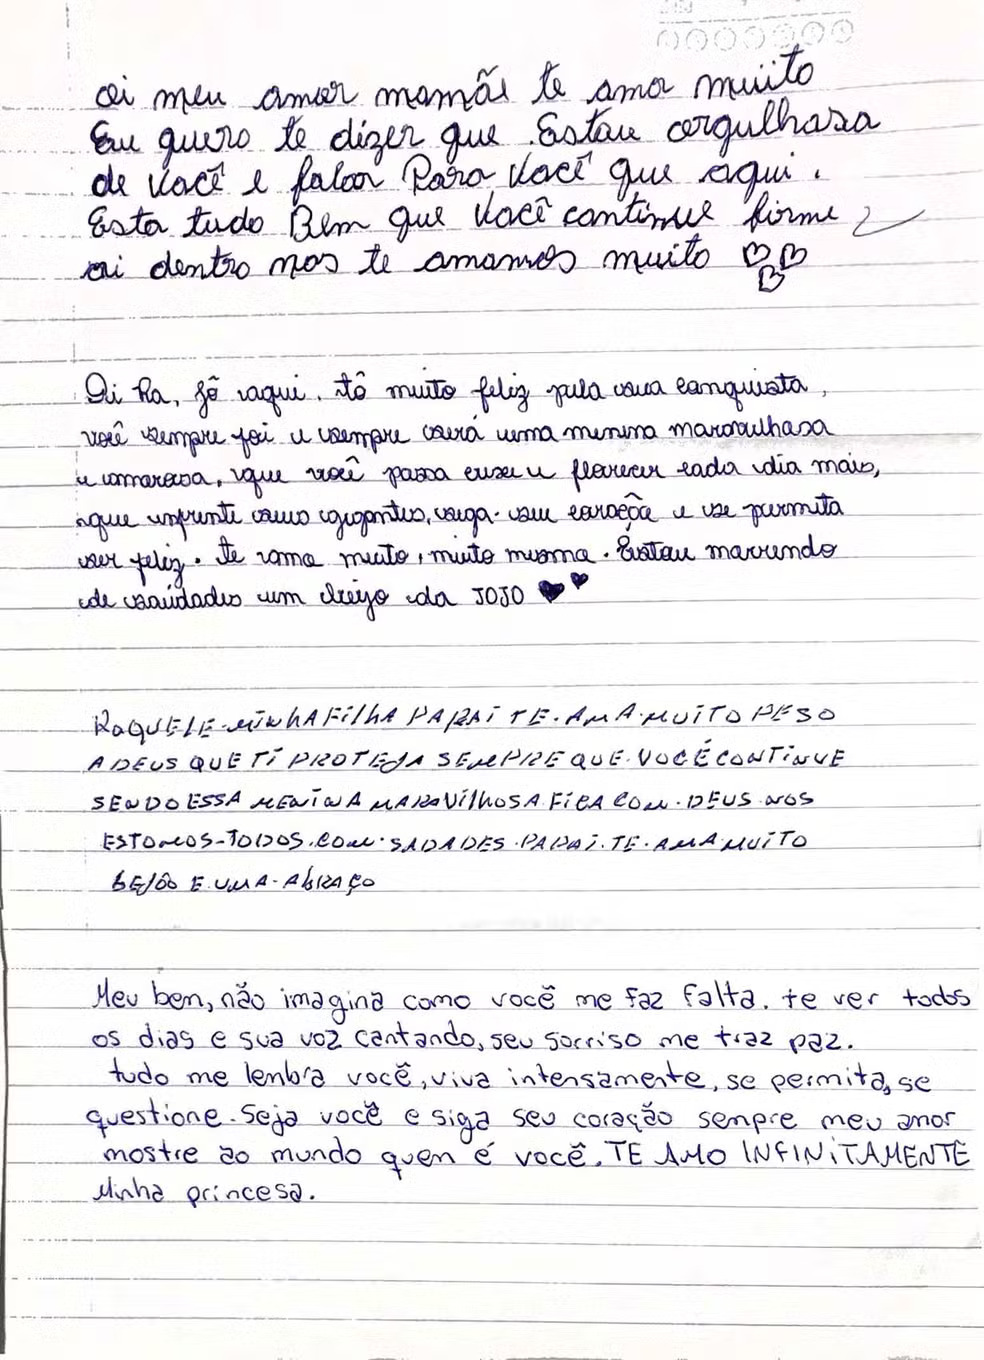 oi meu amor mamãe te ama muito
Eu quero te dizer que Estou orgulhosa
de você e falar Para você que aqui.
Esta tudo Bem que você continue firme
ai dentro nos te amamos muito
Oi Ra, Jô aqui. tô muito feliz pela sua conquista,
você sempre foi e sempre será uma menina maravilhosa
e amorosa, que você possa cresce e florecer cada dia mais,
que enfrente seus gigantes, siga seu coração e se permita
ser feliz. te amo muito, muito mesmo. Estou morrendo
de saúdades um beijo da JOJO
RAQUELE-MINHA FILHA PAPAI TE-AMA-MUITO PESO
A DEUS QUE TI PROTEJA SEMPRE QUE VOCÉ CONTINUE
SENDO ESSA MENINA MARAVILHOSA FICA COM-DEUS NOS
ESTOMOS-TODOS.COM.SADADES.PAPAI.TE.AMA MUITO
BEJOS E UMA-ABRAÇO
Meu ben, não imagina como você me faz falta. te ver todos
os dias e sua voz cantando, seu sorriso me traz paz.
tudo me lembra você, viva intensamente, se permita, se
questione. Seja você e siga seu coração sempre meu amor
mostre ao mundo quem é você. TE AMO INFINITAMENTE
Minha princesa.